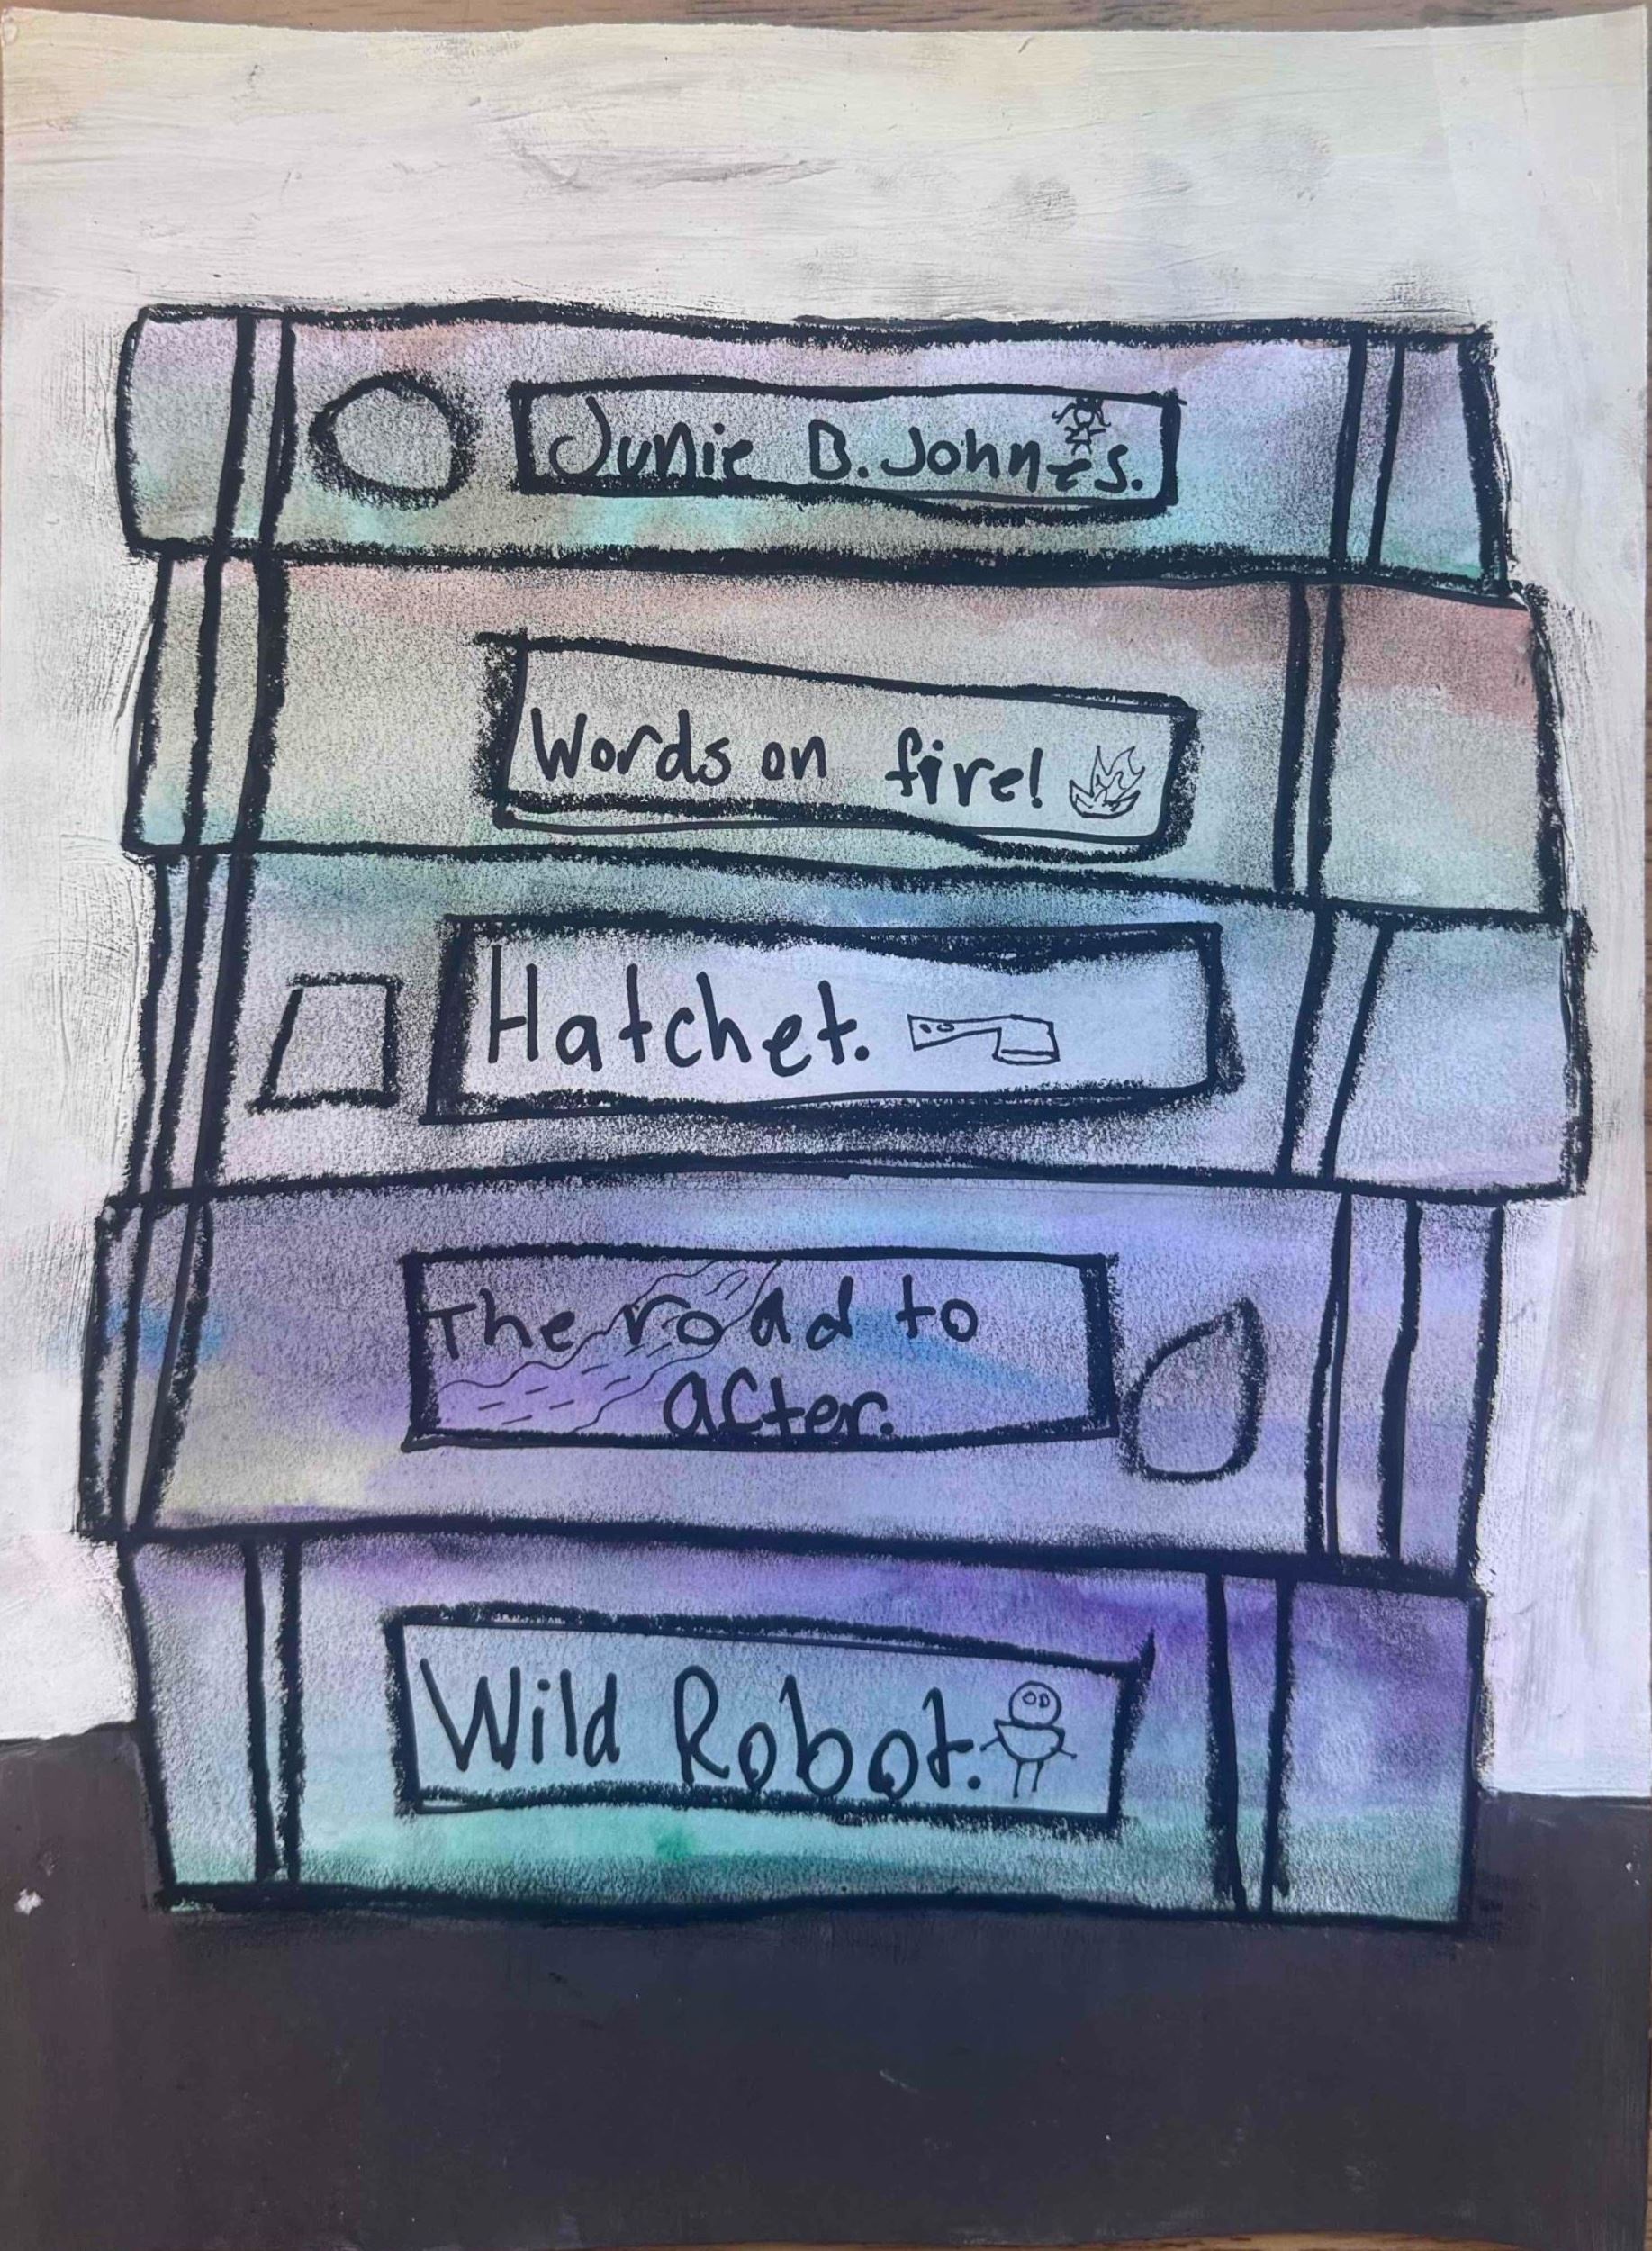 Junie B. Johnes.
Words on fire!
Hatchet.
The road to
after.
Wild Robot.